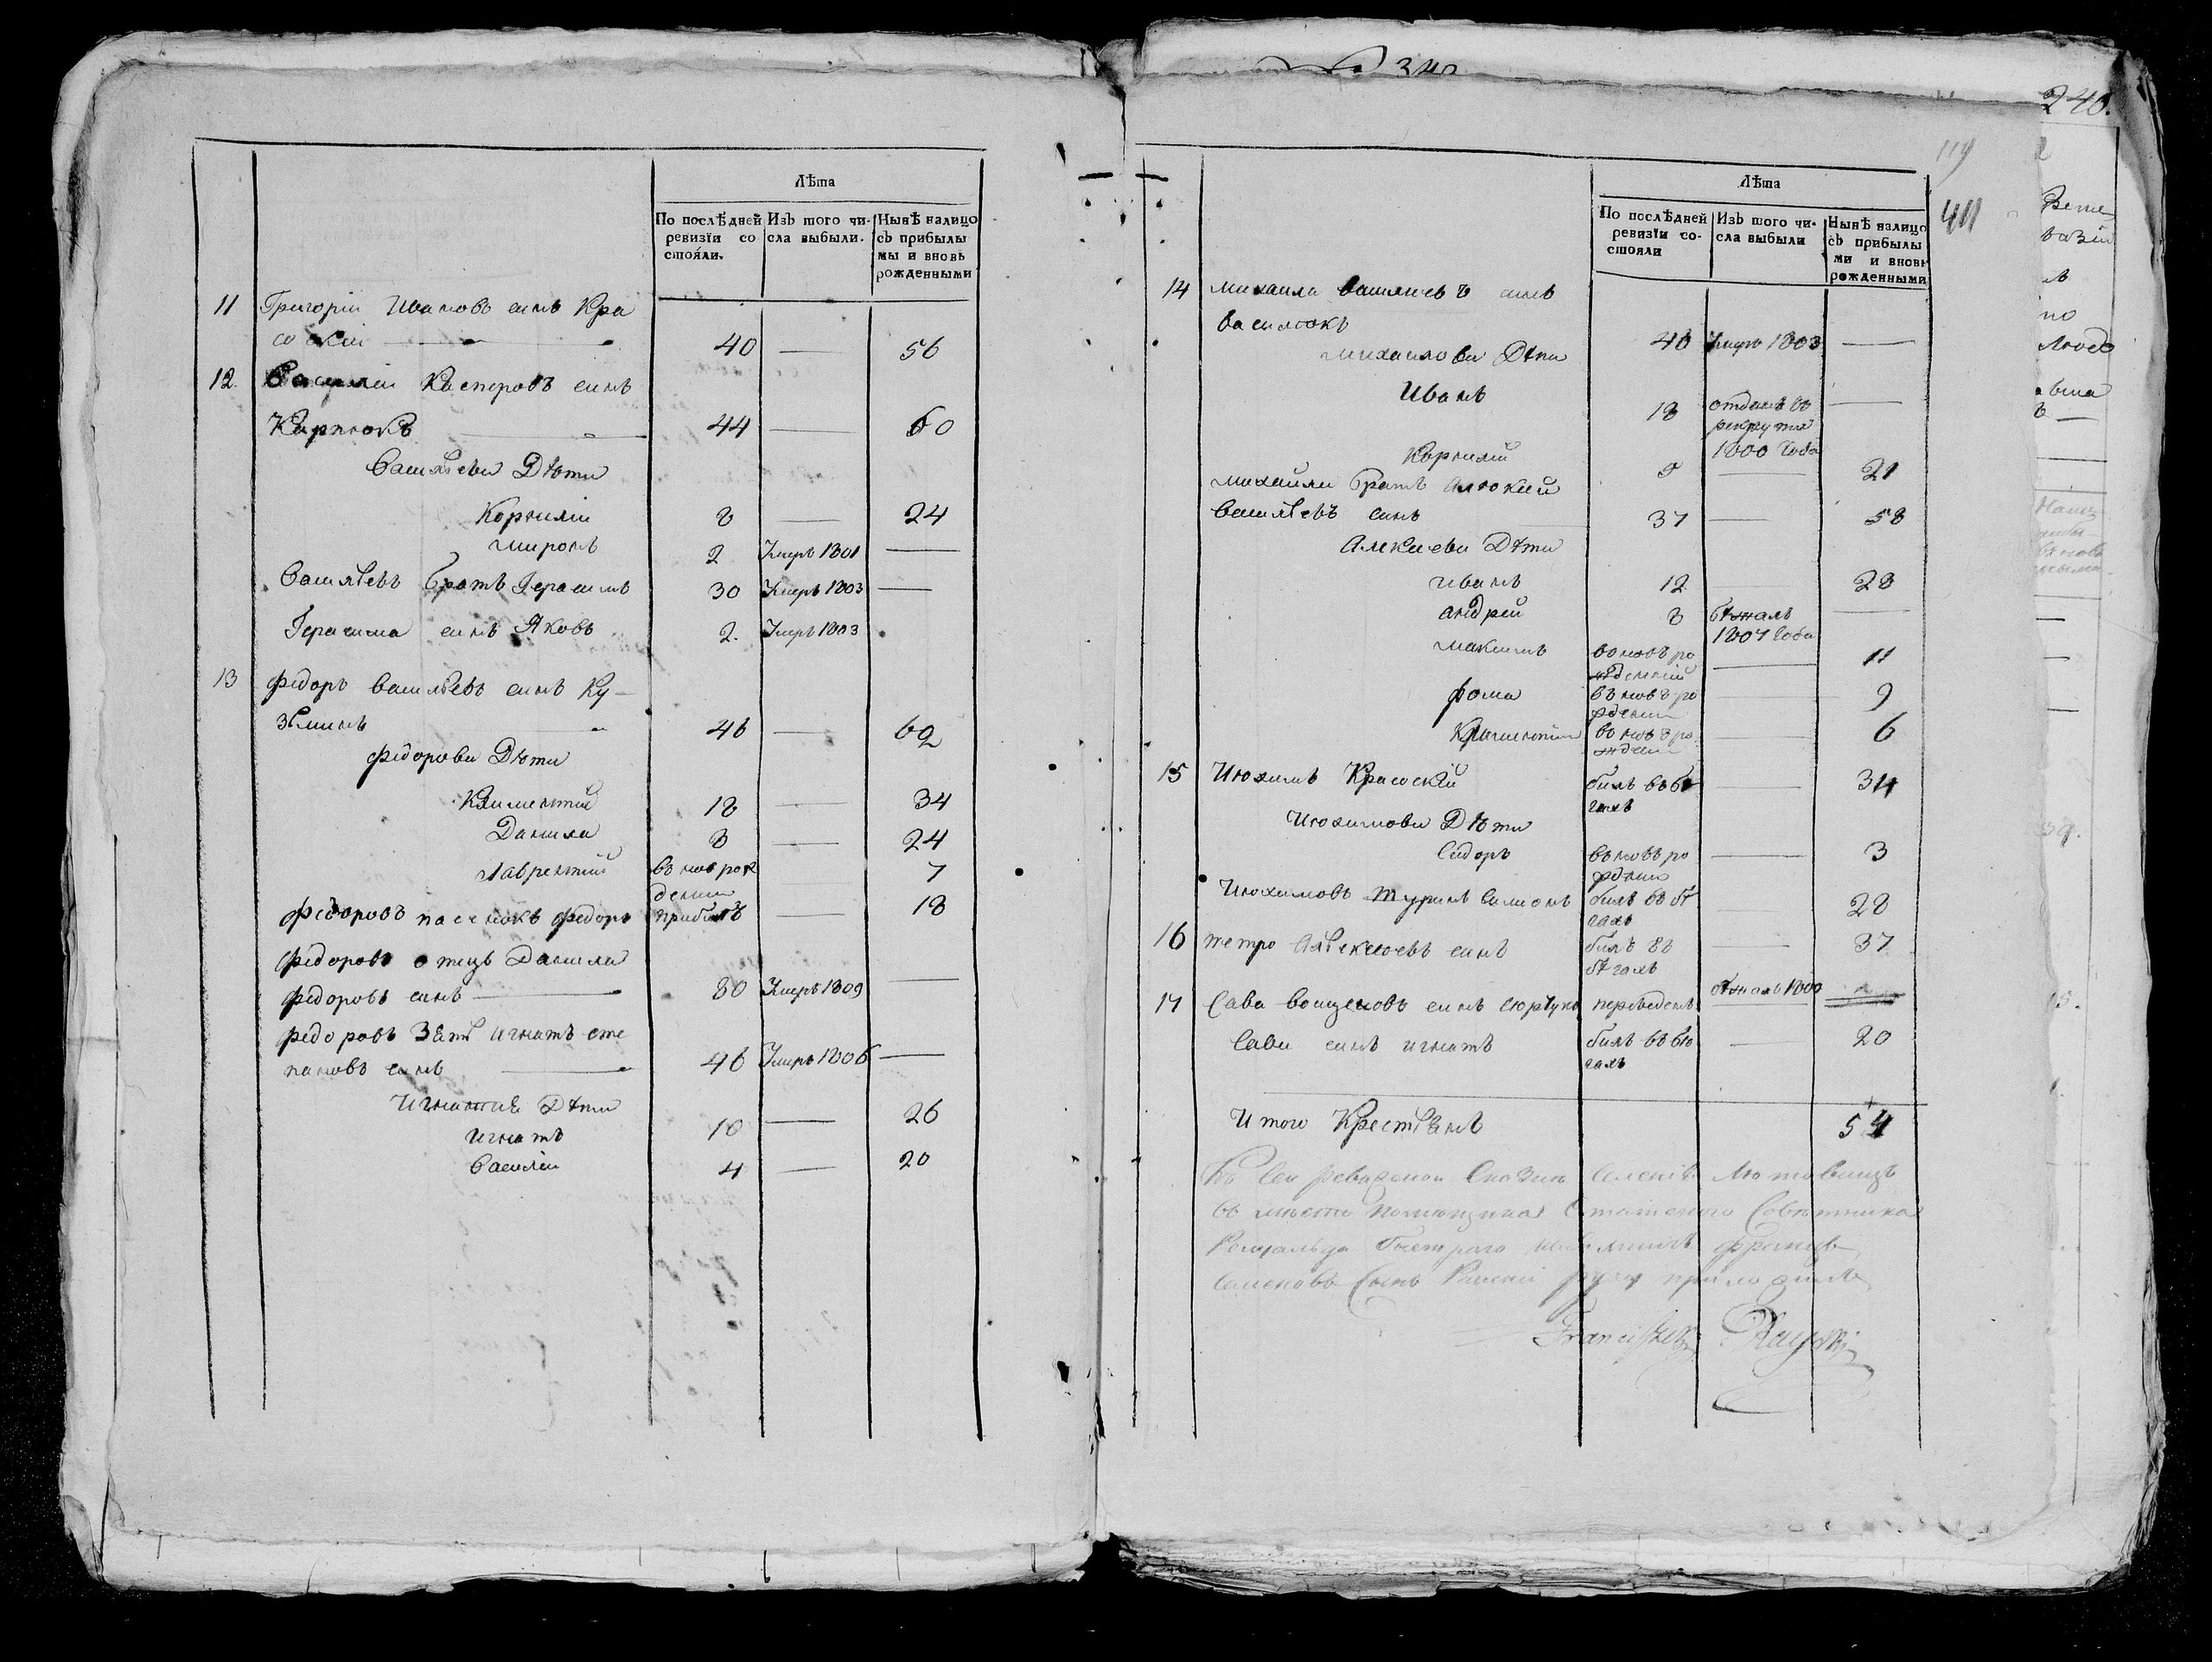 Лѣта
По послѣдней ревизїи со стояли.
Изъ того числа выбыли.
Нынѣ налицо съ прибылы мы и вновь рожденными
11 Григорій Ивановъ синъ Кра
соскій 40 — 56
12. Василій Касперовъ синъ
Карпюкъ 44 — 60
Васильеви Дѣти
Корнилій 8 — 24
Миронъ 2 Умеръ 1801 —
Васильевъ братъ Герасимъ 30 Умеръ 1803 —
Герасима синъ Яковъ 2. Умеръ 1803
13 Федоръ Васильевъ синъ Ку-
зьминъ 46 — 62
Федорови Дѣти
Климентій 18 — 34
Данила 8 — 24
Лаврентій въ нов рож
дении 7
Федоровъ пасенокъ Федоръ прибилъ — 18
Федоровъ отецъ Данила
Федоровъ синъ — 80 Умеръ 1809 —
Федоровъ Зять Игнатъ Сте
пановъ синъ 46 Умеръ 1806 —
Дѣти
Игнатъ 10 — 26
Василій 4 — 20
340
240.
119
411
Лѣта
По послѣдней ревизїи состояли
Изъ того числа выбыли
Нынѣ налицо съ прибылы ми и вновь рожденными
14 Михаила Васильевъ синъ
Василюкъ 46 Умеръ 1803 —
Михаилови Дѣти
Иванъ 18 отданъ въ —
рекруты
1800 Года
Корнилій 5 — 21
Михайли братъ
Васильевъ синъ 37 — 53
Алексеви Дѣти
Иванъ 12 — 28
Андрей 8 бѣжалъ —
1807 Года
Максимъ вновъ ро
жденній — 11
Фома въновъ ро — 9
ждении
вновъ ро — 6
ждении
15 Июхимъ Красоскій билъ въ бѣ — 34
гахъ
Июхимови Дѣти
Сидоръ въновъ ро — 3
ждении
Июхимовъ Симонъ билъ въ бѣ — 28
гахъ
16 Петро Алексеевъ синъ билъ въ — 37
бѣгахъ
17 Сава синъ переведенъ бѣжалъ 1800
Сави синъ Игнатъ билъ въ бѣ — 20
гахъ
Итого Крестьянъ 54
Къ сеи ревизской Сказки
въ место помещика Статского Советника
Франц
Семеновъ Сынъ руку приложилъ
Franciszek